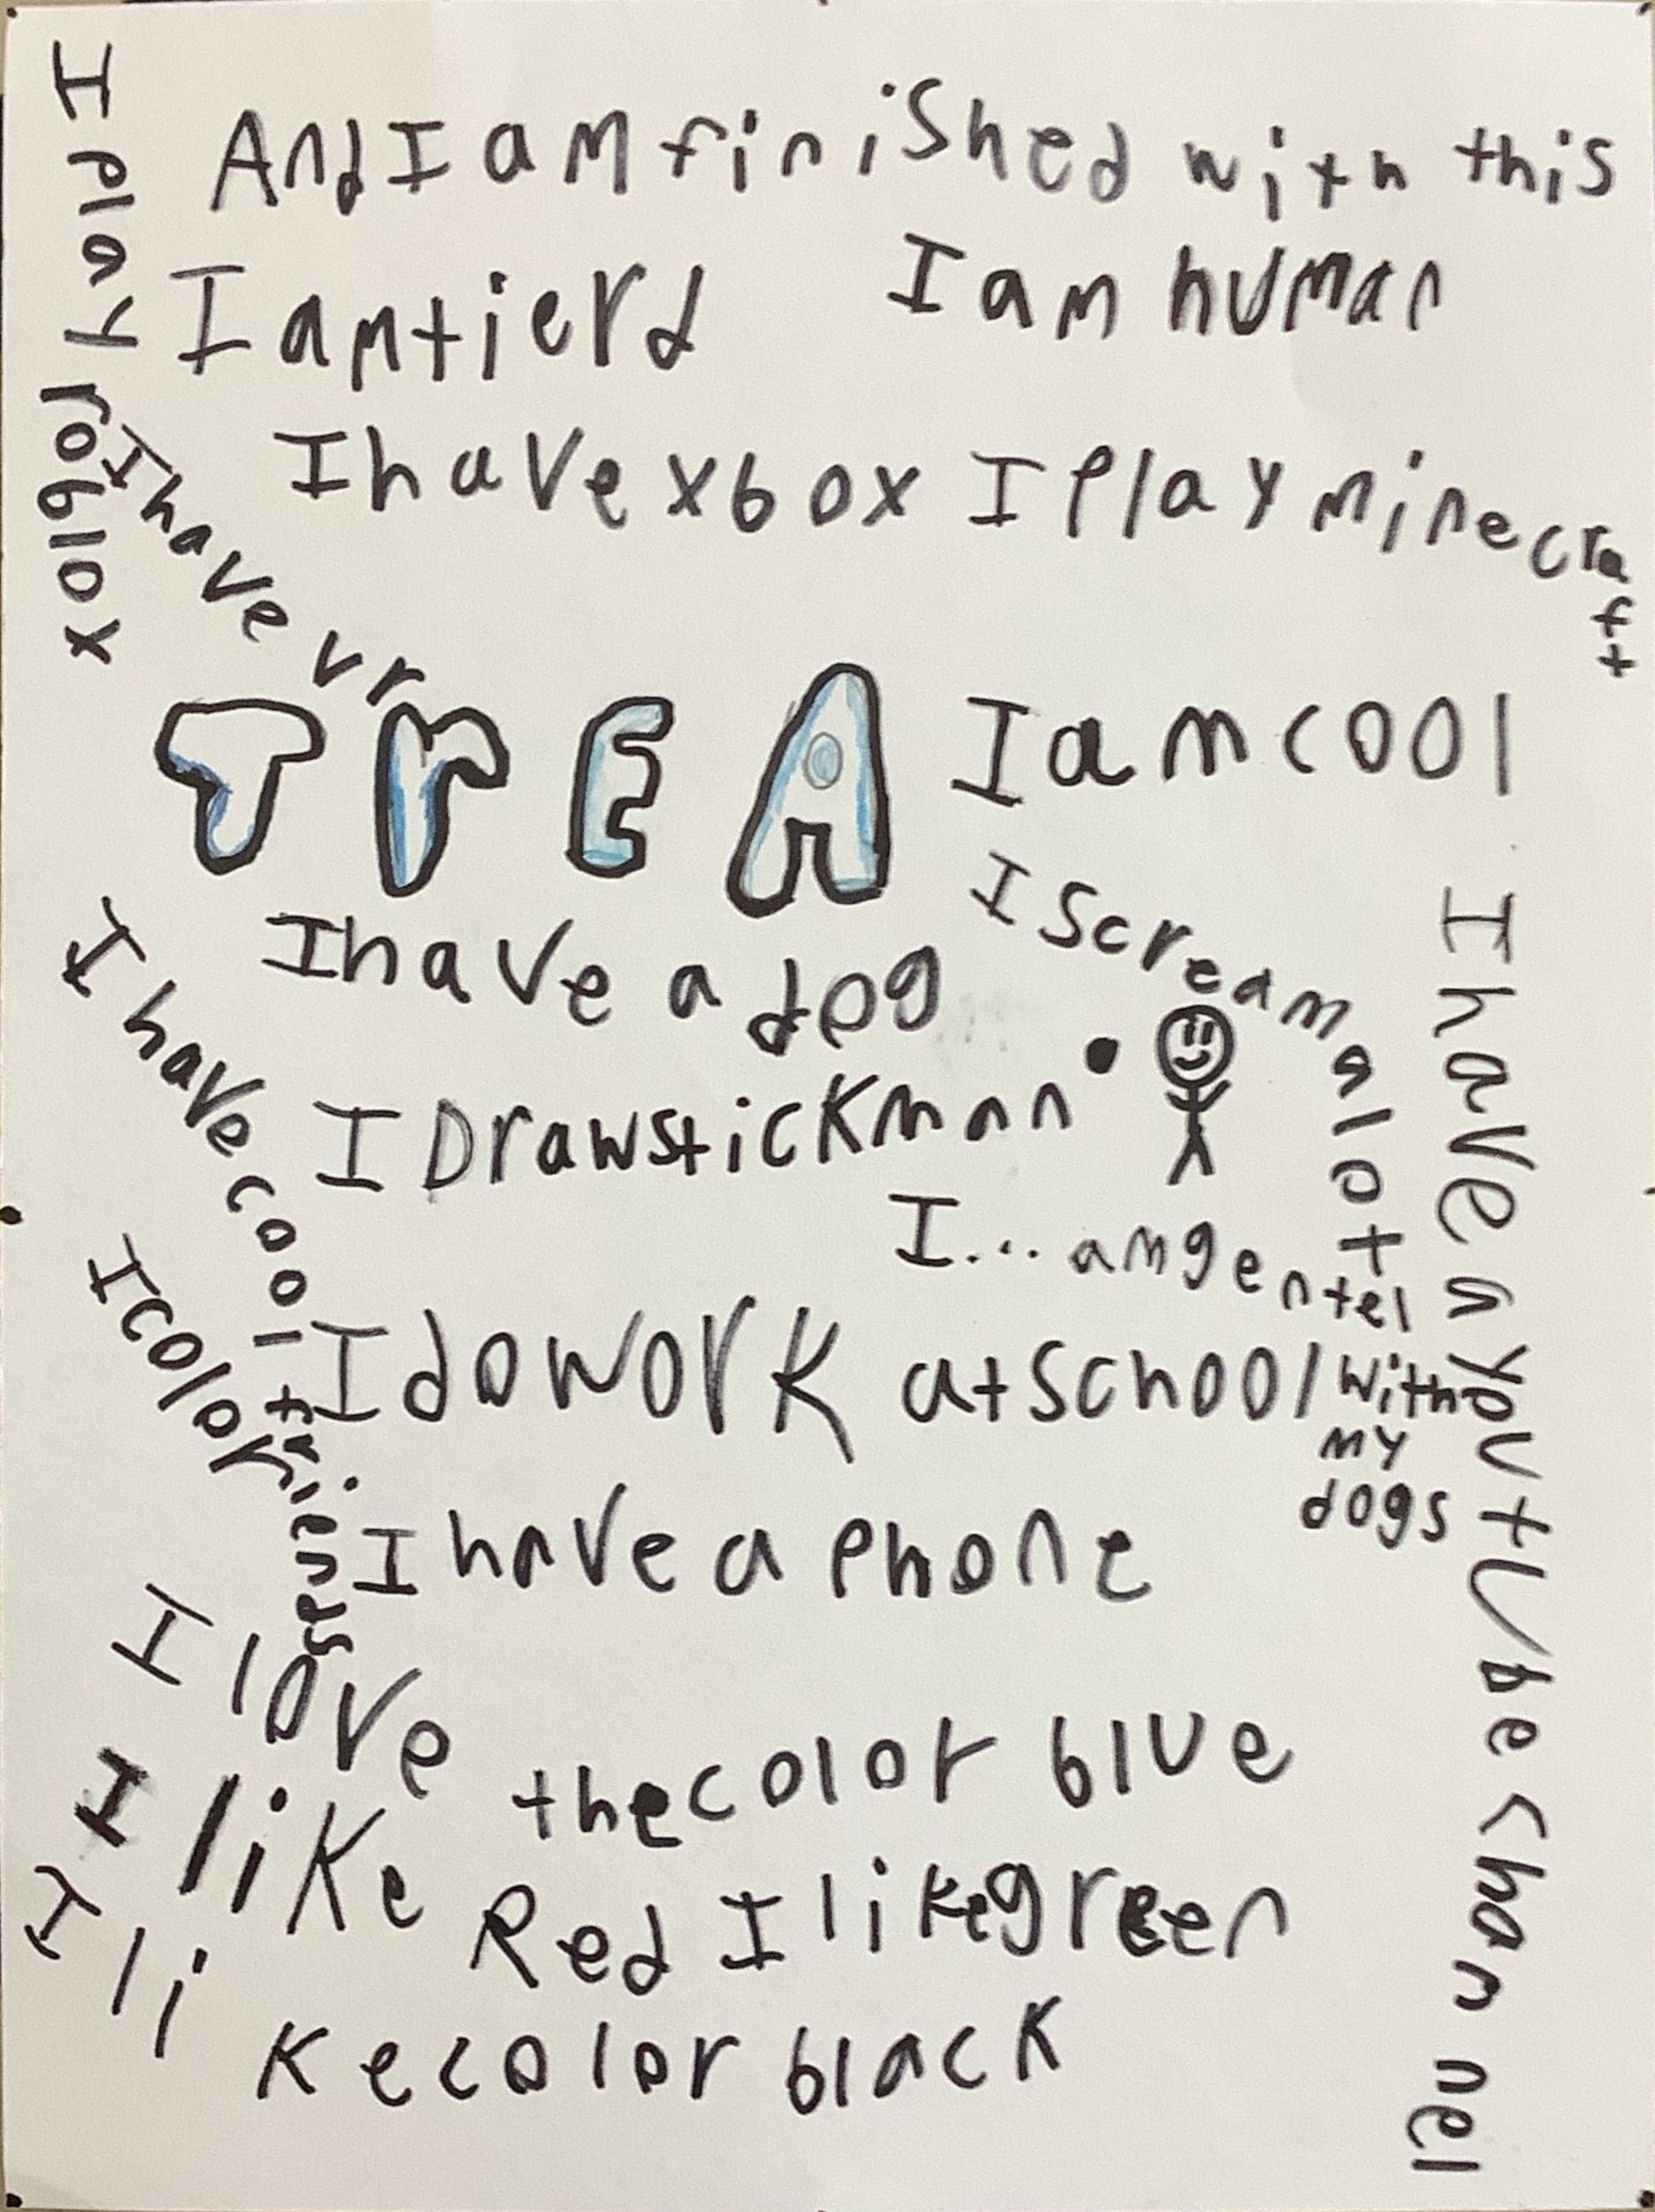 I play roblox
And I am finished with this
I am tierd
I am human
I have xbox
I play minecraft
I have vr
TrEA
I am cool
I scream alot
I have a youtube channel
I have a dog
I have cool friends
I Draw stickman
I... am gentel
I color
I do work at school with
my
dogs
I have a phone
I love the color blue
I like Red I like green
I like color black